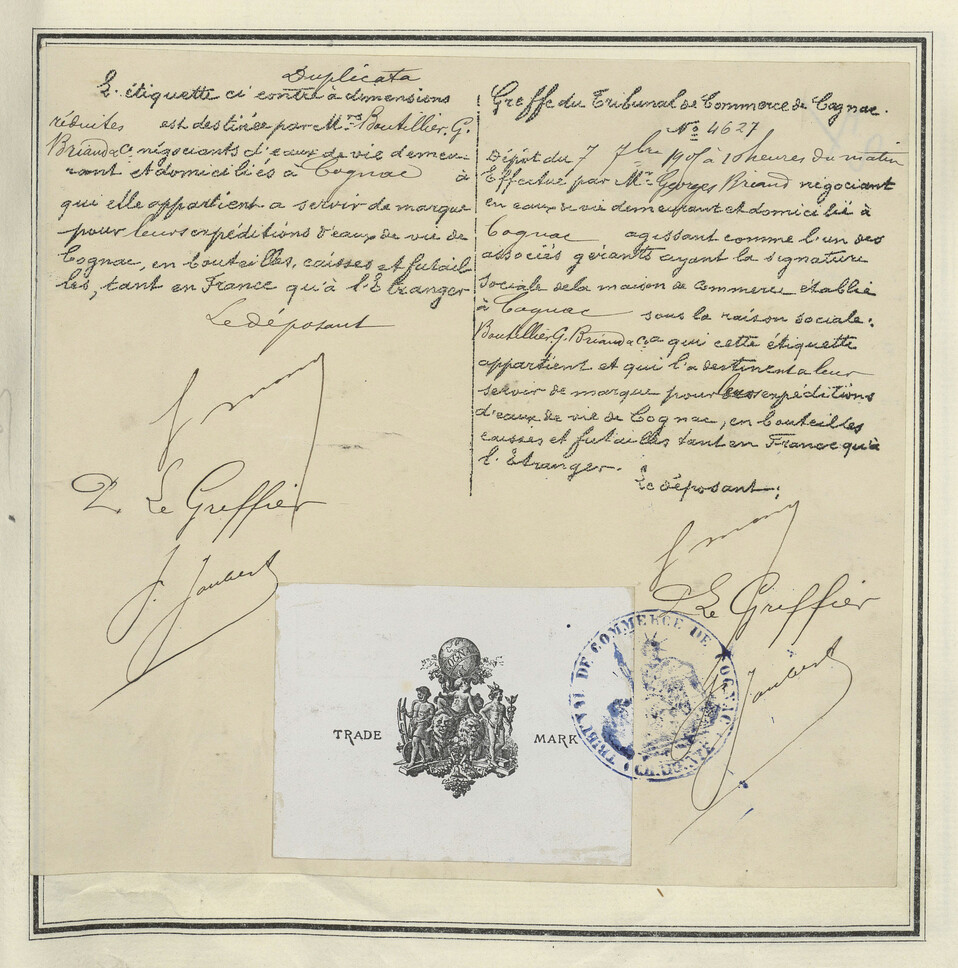 Duplicata
L'étiquette ci contre à dimensions
réduites est destinée par Mrs Boutillier, G.
Briand & Co négociants d'eaux de vie demeu-
rant et domiciliés à Cognac à
qui elle appartient a servir de marque
pour leurs expéditions d'eaux de vie de
Cognac, en bouteilles, caisses et futail-
les, tant en France qu'à l'Etranger
Le déposant
P. Le Greffier
J. Joubert
Greffe du Tribunal de Commerce de Cognac.
No 4627
Dépôt du 7 7bre à 10 heures du matin
Effectué par Mr Georges Briand négociant
en eaux de vie demeurant et domicilié à
Cognac agissant comme l'un des
associés gérants ayant la signature
sociale de la maison de Commerce établie
à Cognac sous la raison sociale:
Boutillier, G. Briand & Co a qui cette étiquette
appartient et qui l'a destinent a leur
servir de marque pour leurs expéditions
d'eaux de vie de Cognac, en bouteilles
caisses et futailles tant en France qu'à
l'Etranger.
Le déposant:
P. Le Greffier
J. Joubert
COGNAC
TRADE MARK
TRIBUNAL DE COMMERCE DE COGNAC